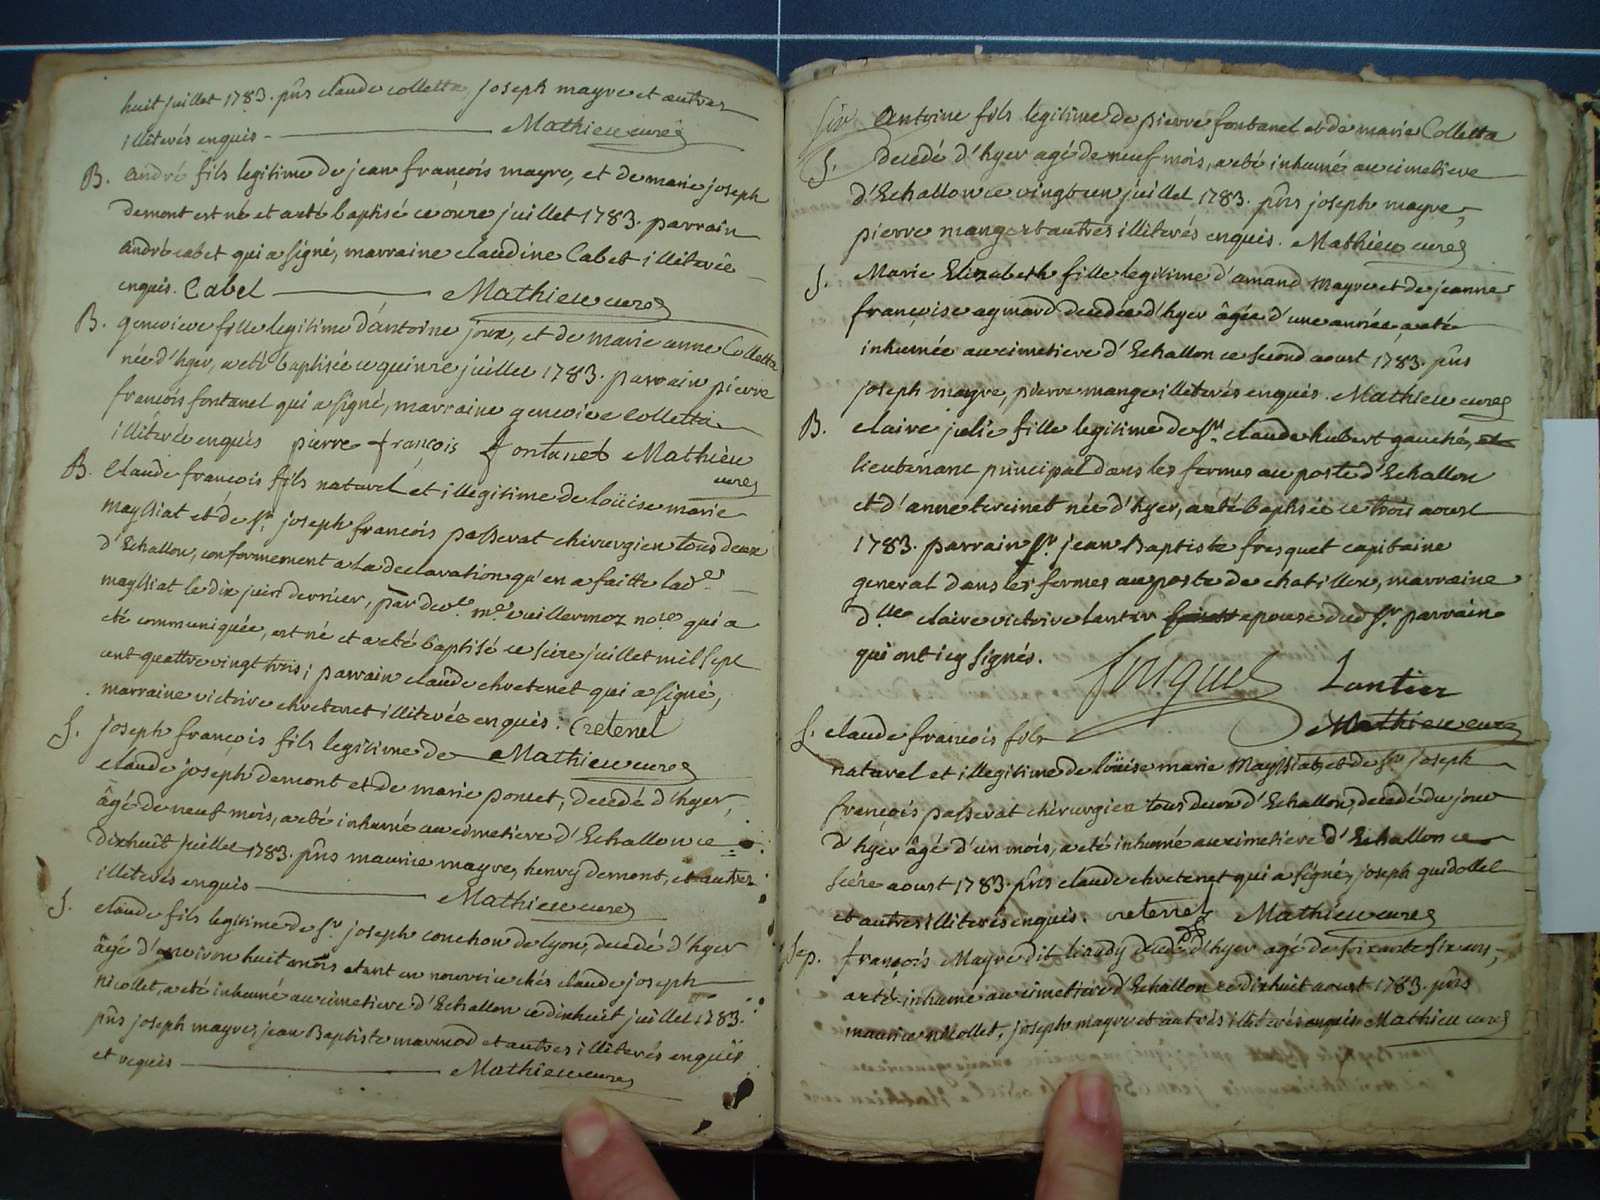 huit juillet 1783. pns claude colletta joseph mayre et autres
illiterés enquis. Mathieu curé
B. andré fils legitime de jean françois mayre, et de marie joseph
demont est né et a eté baptisé ce onze juillet 1783. parrain
andré cabet qui a signé, marraine claudine Cabet illiterée
enquis. Cabet Mathieu curé
B. genevieve fille legitime d'antoine joux, et de marie anne Colletta
née d'hyer, a eté baptisée ce quinze juillet 1783. parrain pierre
françois fontanel qui a signé, marraine genevieve colletta
illiterée enquis pierre françois fontanel Mathieu
curé
B. Claude françois fils naturel et illegitime de loüise marie
mayssiat et de sr. joseph françois passerat chirurgien tous deux
d'Echallon, conformement a la declaration qu'en a faitte lade.
mayssiat le dix juin dernier, par devt me vuillermoz nore qui a
eté communiquée, est né et a eté baptisé ce seize juillet mil sept
cent quattre vingt trois; parrain claude chretenet qui a signé,
marraine victoire chretenet illiterée enquis. Cretenet
S. joseph françois fils legitime de Mathieu curé
claude joseph demont et de marie poncet, decedé d'hyer,
âgé de neuf mois, a eté inhumé au cimetiere d'Echallon ce
dixhuit juillet 1783. pns maurice mayre, henry demont, et autres
illiterés enquis Mathieu curé
S. claude fils legitime de sr. joseph conchon de lyon, decedé d'hyer
âgé d'environ huit mois etant en nourrice chés claude joseph
nicollet, a eté inhumé au cimetiere d'Echallon ce dixhuit juillet 1783.
pns joseph mayre, jean Baptiste marmod et autres illiterés enquis
et requis Mathieu curé
antoine fils legitime de pierre fontanel et de marie Colletta
S. decedé d'hyer agé de neuf mois, a eté inhumé au cimetiere
d'Echallon ce vingt un juillet 1783. pns joseph mayre,
pierre mange et autres illiterés enquis. Mathieu curé
S. Marie Elizabeth fille legitime d'amand Mayre et de jeanne
françoise aymard decedée d'hyer âgée d'une année a eté
inhumée au cimetiere d'Echallon ce second aoust 1783. pns
joseph mayre, pierre mange illiterés enquis. Mathieu curé
B. claire julie fille legitime de sr. claude hubert gauché,
lieutenant principal dans les fermes au poste d'Echallon
et d'anne tercinet née d'hyer, a eté baptisée ce trois aoust
1783. parrain sr. jean Baptiste fresquet capitaine
general dans les fermes au poste de chatillon, marraine
dlle claire victoire lantier epouse dud sr. parrain
qui ont icy signés. fresquet Lantier
Mathieu curé
S. claude françois fils
naturel et illegitime de loüise marie Mayssiat, et de sr joseph
françois passerat chirurgien tous deux d'Echallon, decedé du jour
d'hyer âgé d'un mois, a eté inhumé au cimetiere d'Echallon ce
seize aoust 1783. pns claude chretenet qui a signé, joseph guidollet
et autres illiterés enquis. cretenet Mathieu curé
Sep. françois Mayre dit decedé d'hyer agé de soixante six ans,
a eté inhumé au cimetiere d'Echallon ce dixhuit aoust 1783. pns
maurice nicollet, joseph mayre et autres illiterés enquis Mathieu curé